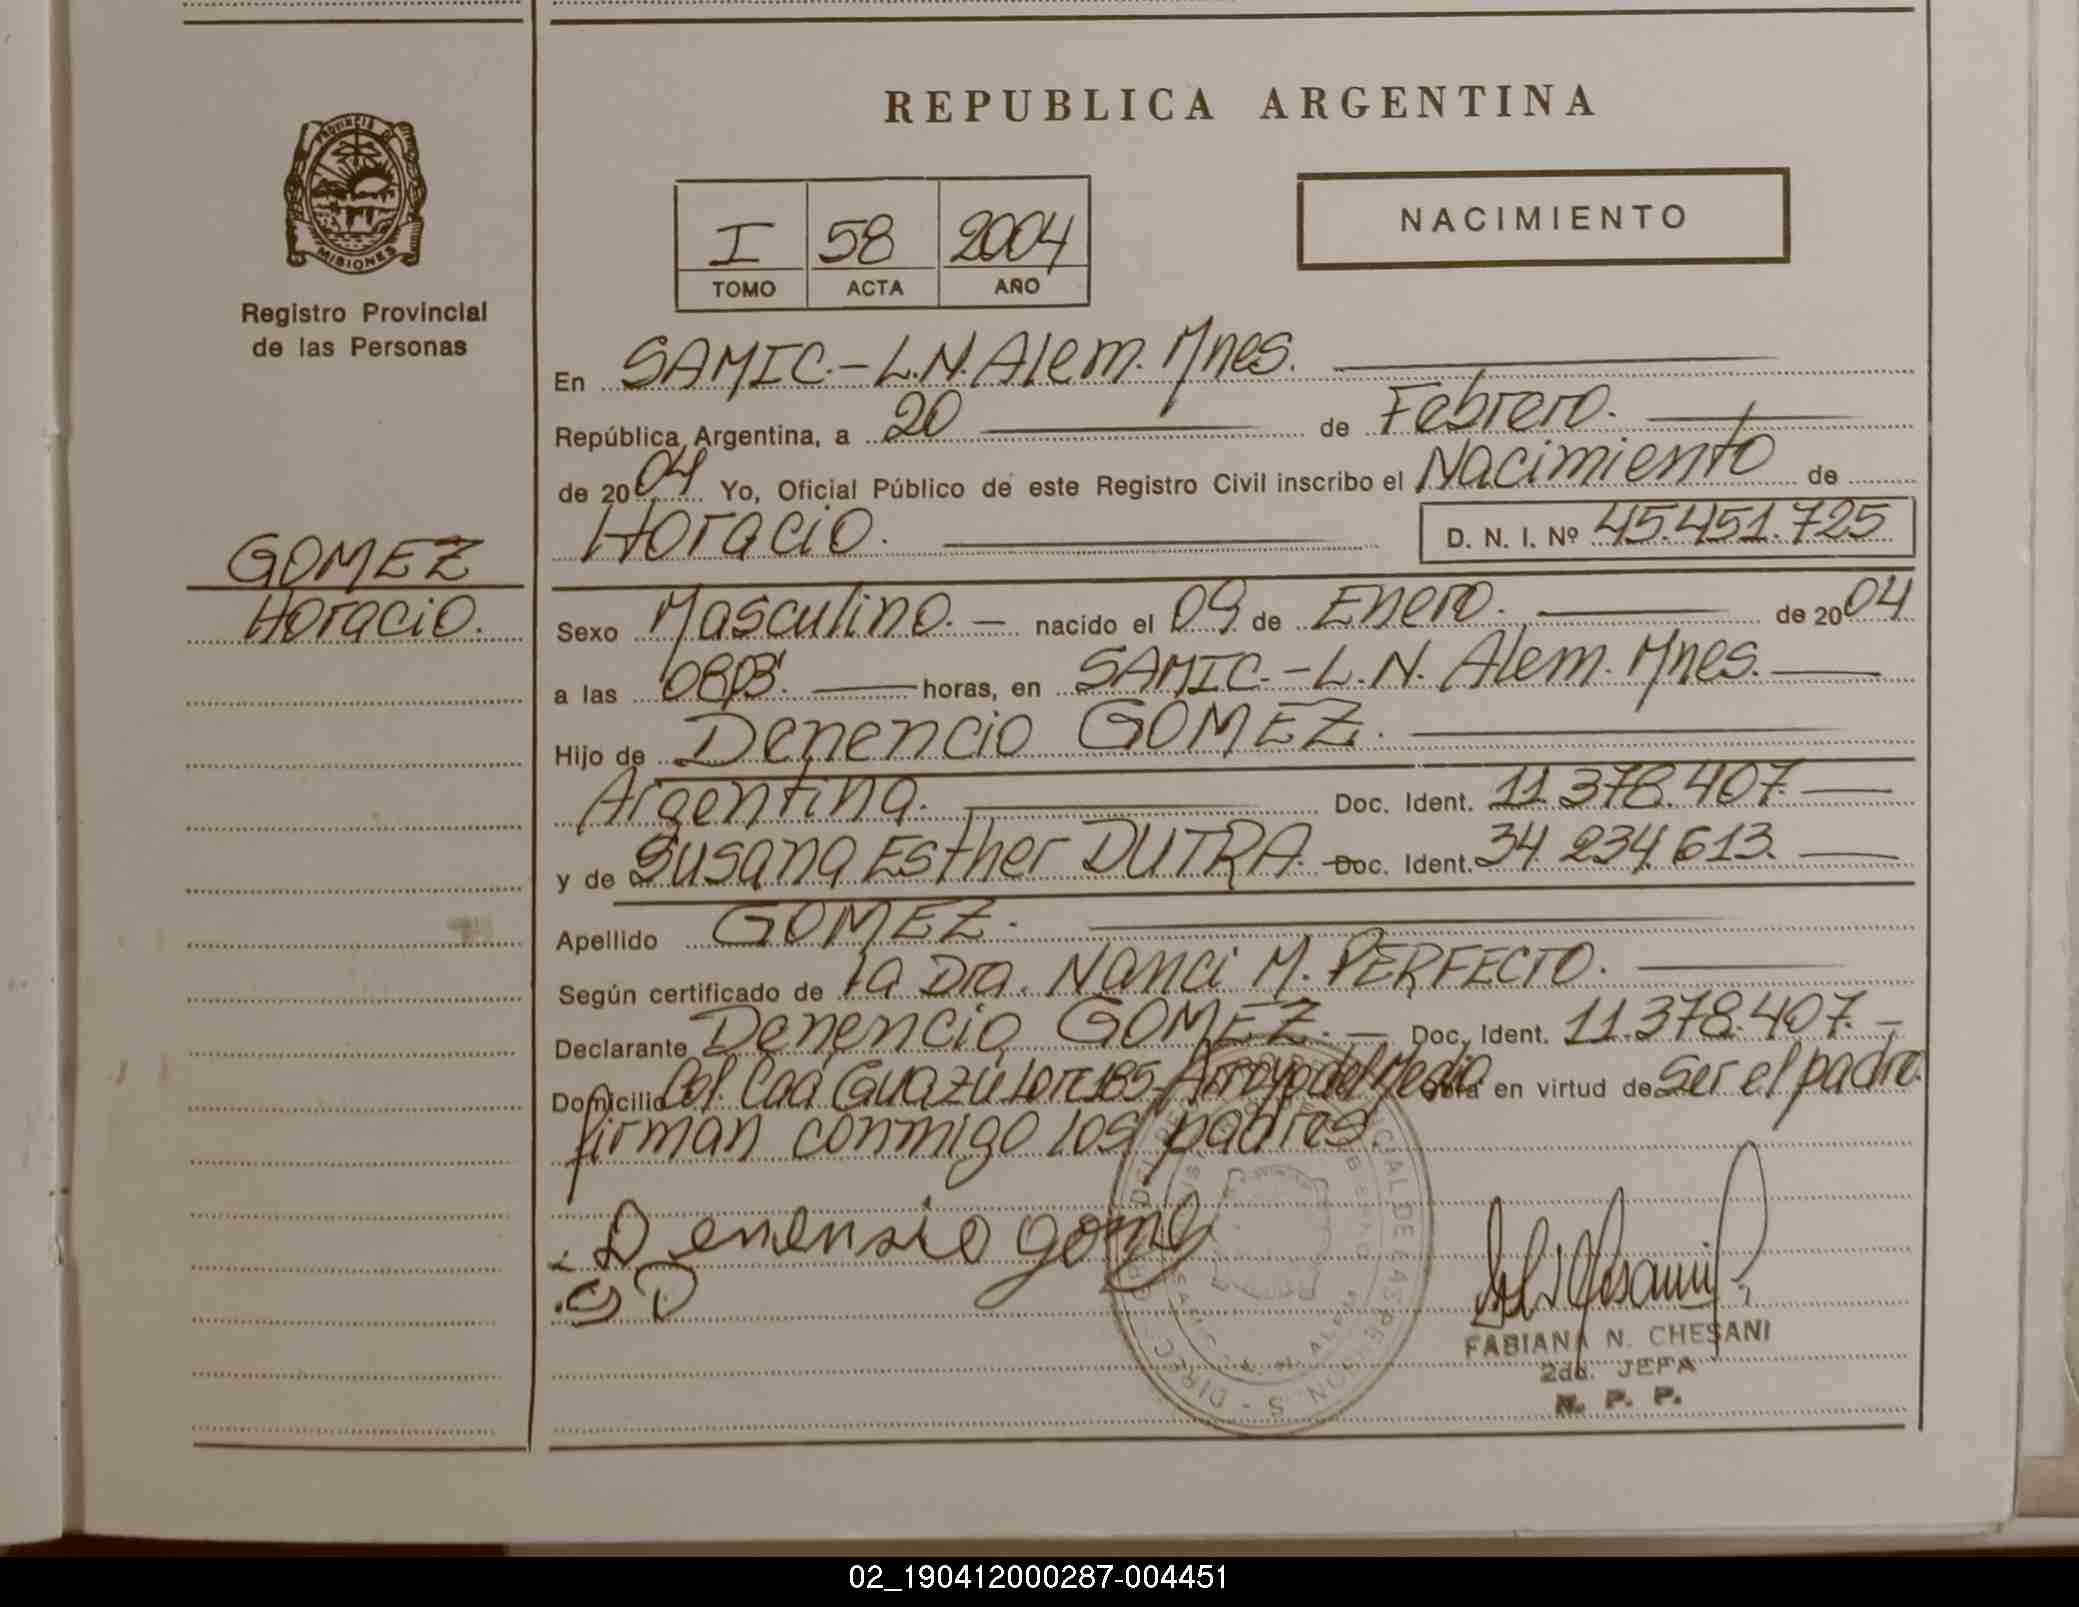 REPUBLICA ARGENTINA
PROVINCIA DE
MISIONES
Registro Provincial
de las Personas
I 58 2004
TOMO ACTA AÑO
NACIMIENTO
En SAMIC.- L.N. Alem. Mnes.
República Argentina, a 20 de Febrero.
de 2004 Yo, Oficial Público de este Registro Civil inscribo el Nacimiento de
Horacio. D. N. I. Nº 45.451.725
GOMEZ
Horacio.
Sexo Masculino. - nacido el 09 de Enero. de 2004
a las horas, en SAMIC.- L.N. Alem. Mnes.
Hijo de Denencio GOMEZ.
Argentina. Doc. Ident. 11.378.407.
y de Susana Esther DUTRA. Doc. Ident. 34.234.613.
Apellido GOMEZ.
Según certificado de la Dra. Nanci M. PERFECTO.
Declarante Denencio GOMEZ. - Doc. Ident. 11.378.407.-
Domicilio Col. Caá Guazú Lote 185 Arroyo del Medio Obra en virtud de ser el padre.
firman conmigo los padres.
Denensio gomez
SD
FABIANA N. CHESANI
2da. JEFA
R. P. P.
02_190412000287-004451